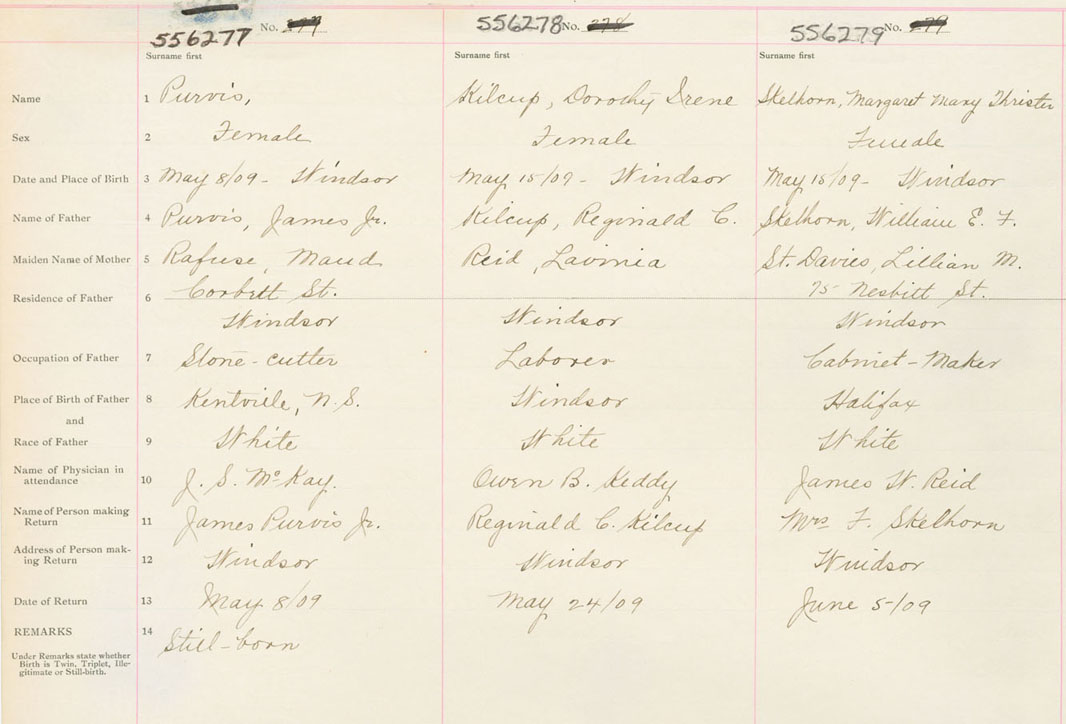 556277 No. 277 556278 No. 278 556279 No. 279
Surname first Surname first Surname first
Name 1 Purvis, Kilcup, Dorothy Irene Skelhorn, Margaret Mary Thrister
Sex 2 Female Female Female
Date and Place of Birth 3 May 8/09 - Windsor May 15/09 - Windsor May 15/09 - Windsor
Name of Father 4 Purvis, James Jr. Kilcup, Reginald C. Skelhorn, William E. F.
Maiden Name of Mother 5 Rafuse, Maud Reid, Lavinia St. Davies, Lillian M.
Residence of Father 6 Corbett St. 75 Nesbitt St.
Windsor Windsor Windsor
Occupation of Father 7 Stone-cutter Laborer Cabinet-Maker
Place of Birth of Father 8 Kentville, N.S. Windsor Halifax
and
Race of Father 9 White White White
Name of Physician in
attendance 10 J. S. McKay. Owen B. Keddy James W. Reid
Name of Person making
Return 11 James Purvis Jr. Reginald C. Kilcup Mrs F. Skelhorn
Address of Person mak-
ing Return 12 Windsor Windsor Windsor
Date of Return 13 May 8/09 May 24/09 June 5/09
REMARKS 14 Still-born
Under Remarks state whether
Birth is Twin, Triplet, Ille-
gitimate or Still-birth.